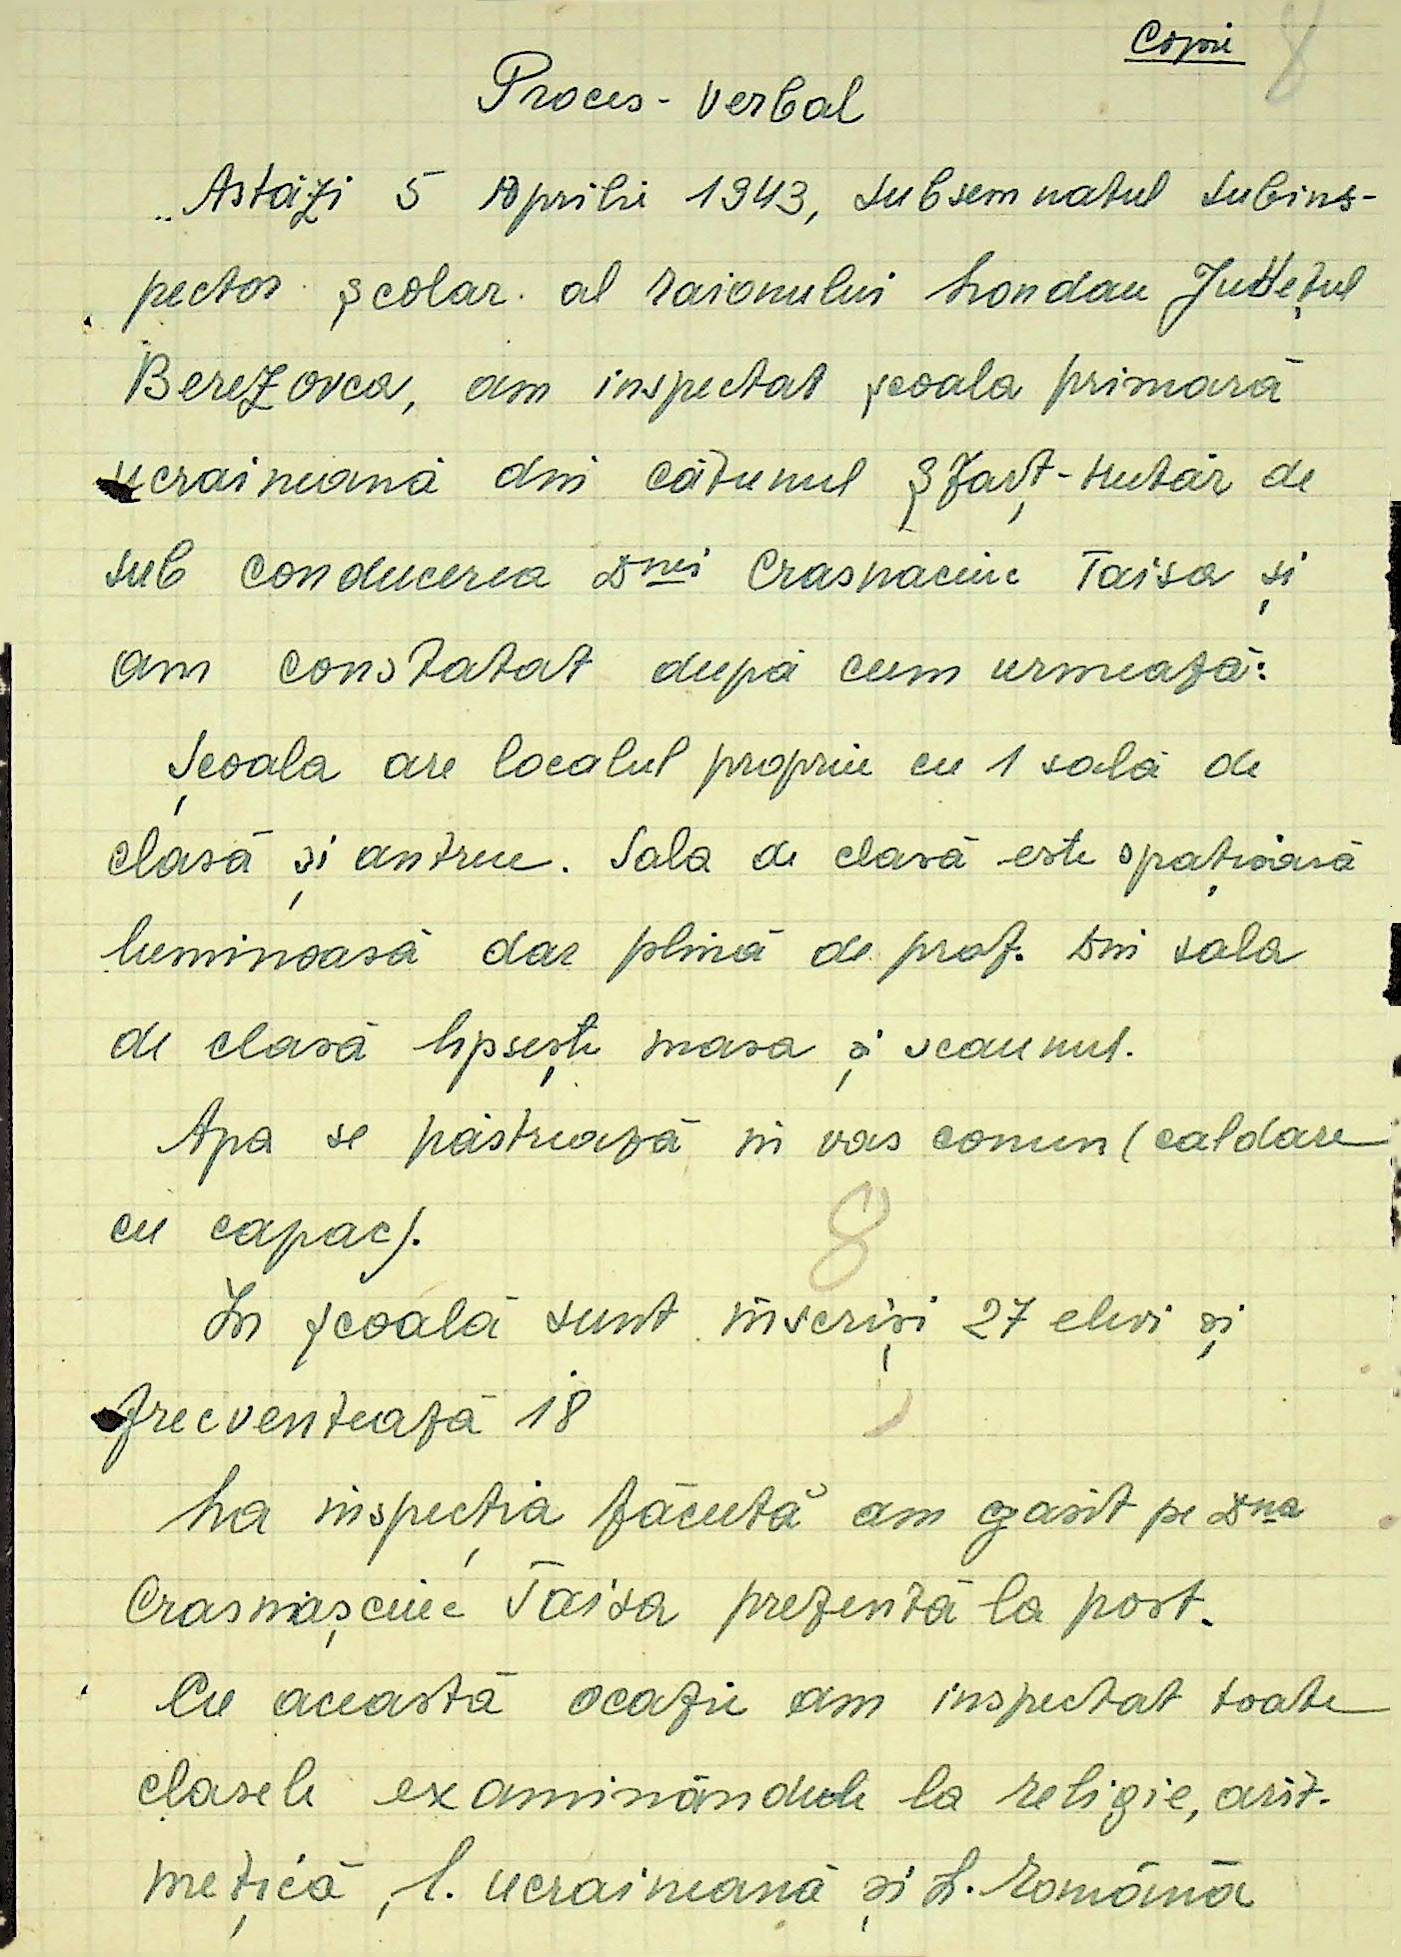 Copie 8
Proces-verbal
„Astăzi 5 Aprilie 1943, subsemnatul subins-
pector școlar al raionului Londau Județul
Berezovca, am inspectat școala primară
ucraineană din cătunul Șfarț-Hutăr de
sub conducerea Dnei Crasnaciuc Taisa și
am constatat după cum urmează:
Școala are localul propriu cu 1 sală de
clasă și antreu. Sala de clasă este spațioasă
luminoasă dar plină de praf. Din sala
de clasă lipsește masa și scaunul.
Apa se păstrează în vas comun (caldare
cu capac).
8
În școală sunt înscriși 27 elevi și
frecventează 18
La inspecția făcută am găsit pe Dna
Crasnașciuc Taisa prezentă la post.
Cu această ocazie am inspectat toate
clasele examinându-le la religie, arit-
metică, l. ucraineană și L. Română